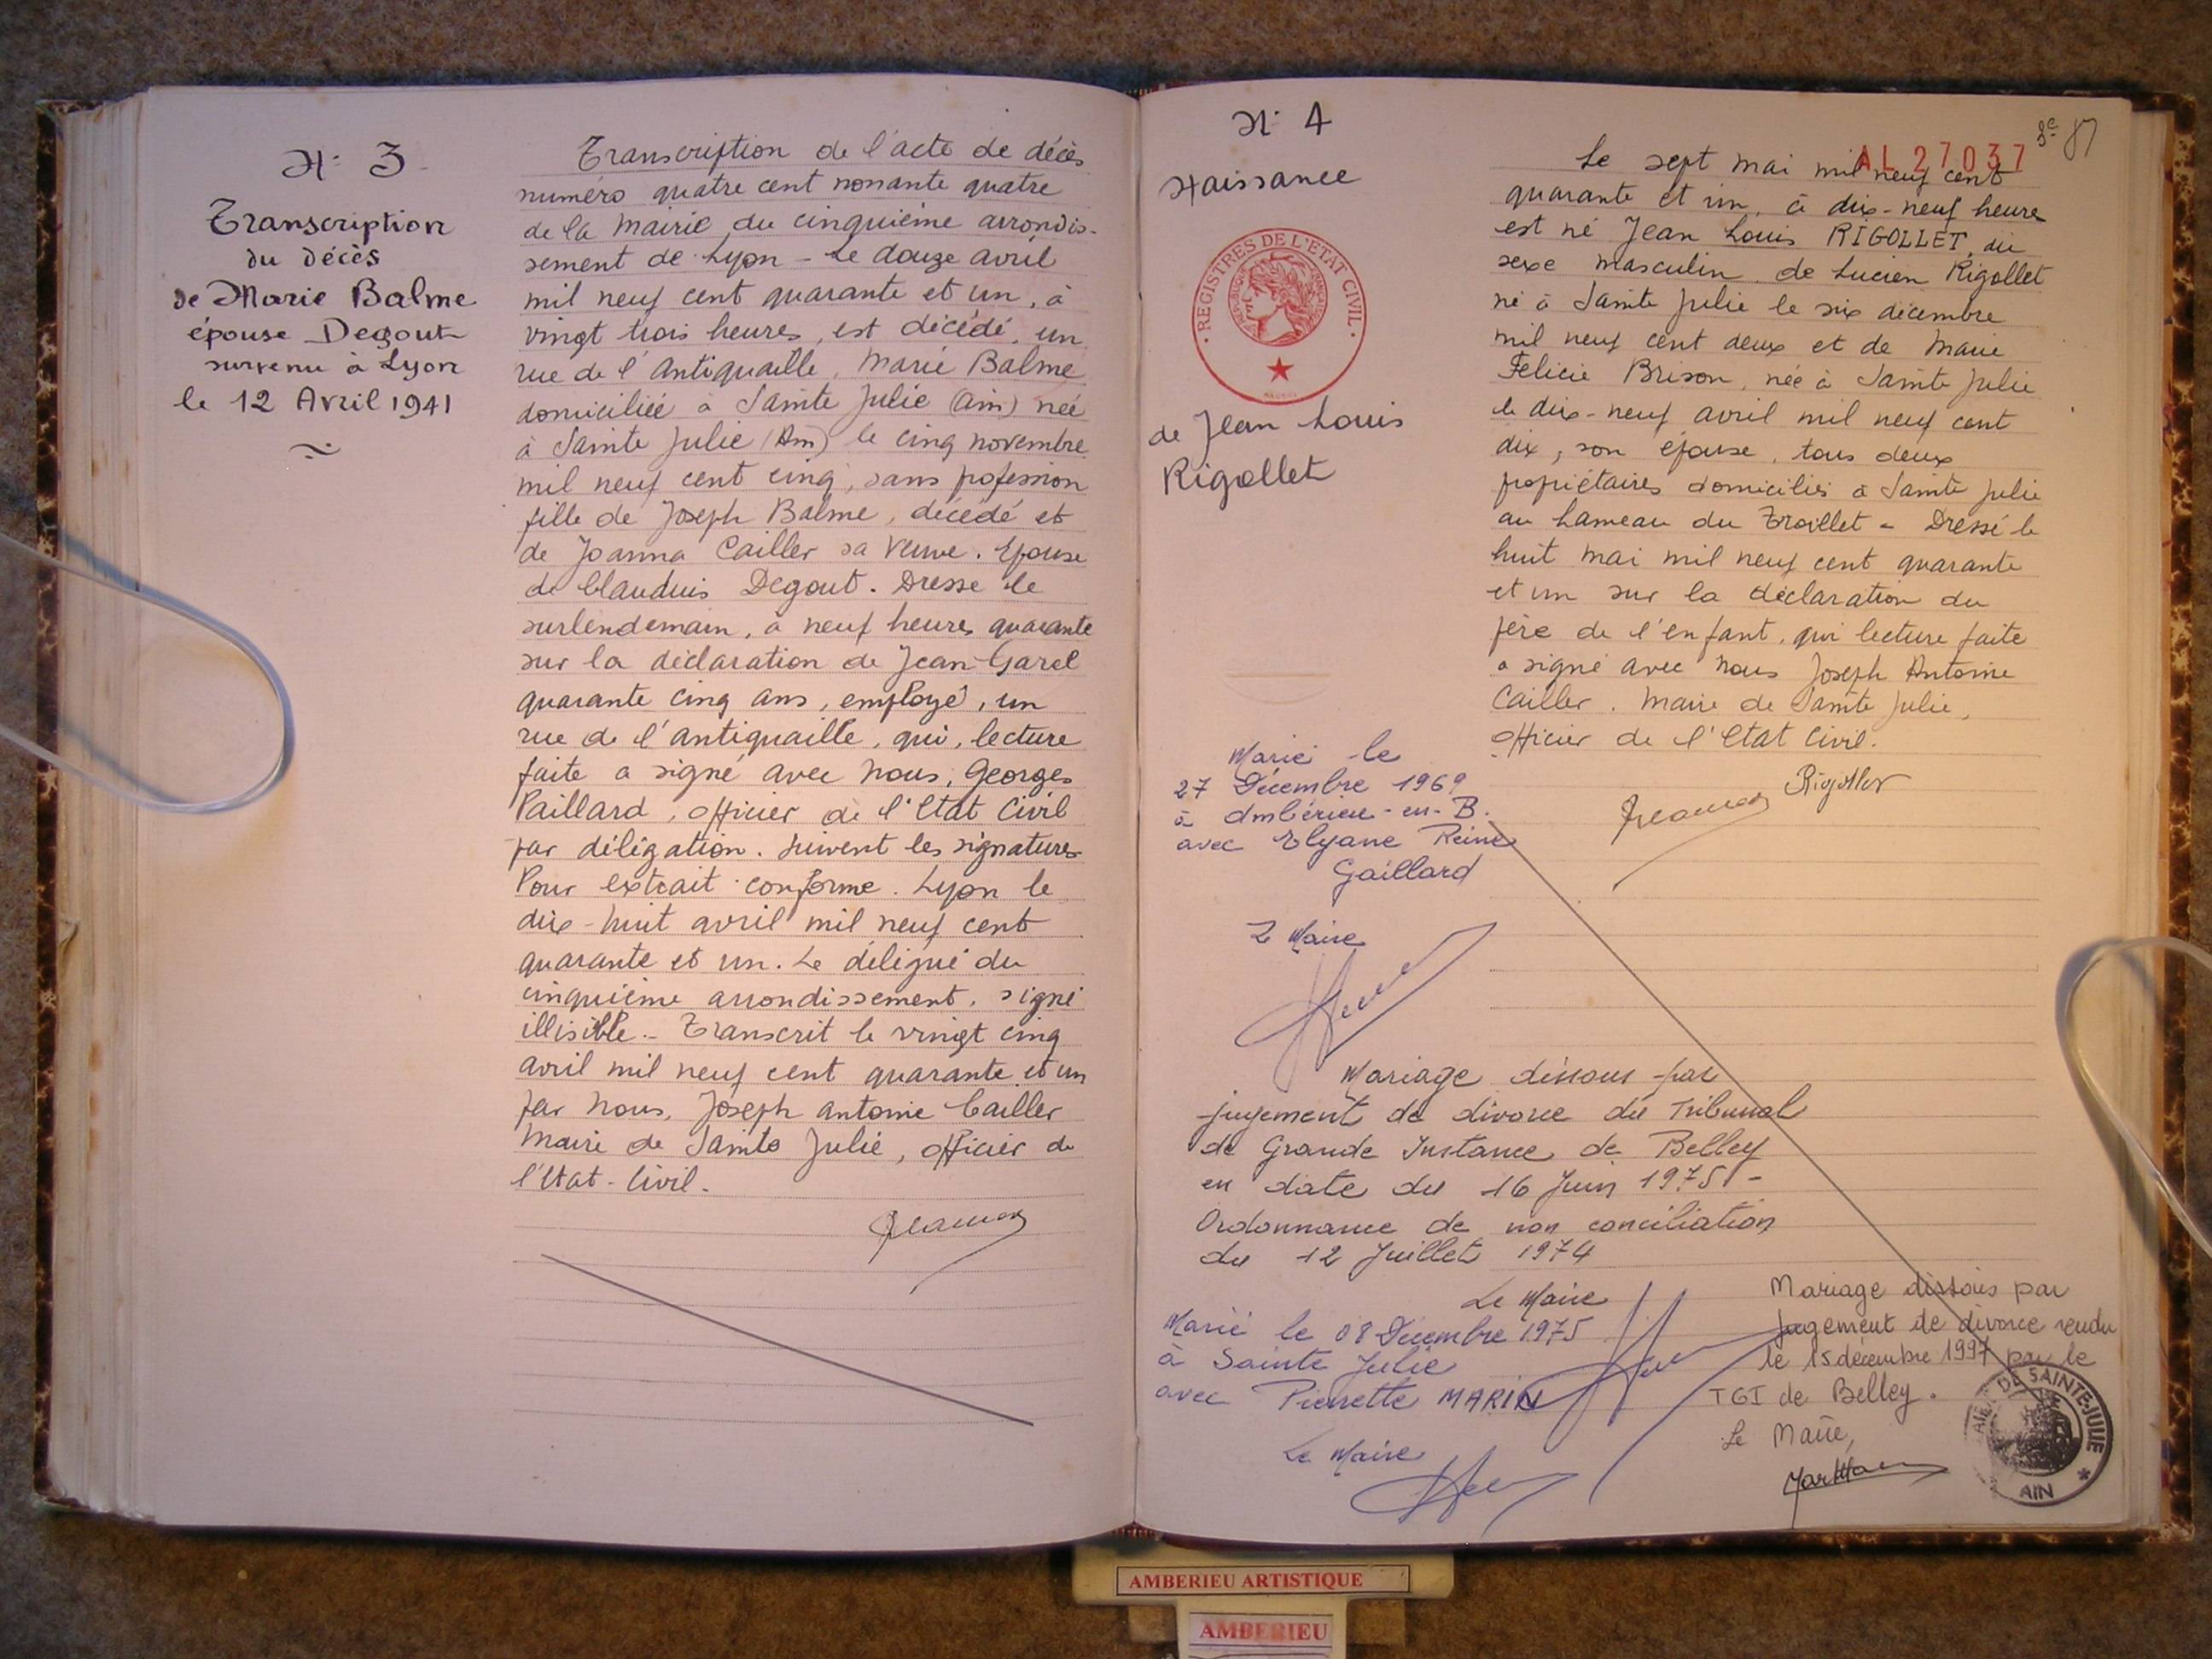 N° 3
Transcription
du décès
de Marie Balme
épouse Degout
survenu à Lyon
le 12 Avril 1941
Transcription de l'acte de décès
numéro quatre cent nonante quatre
de la Mairie du cinquième arrondis-
sement de Lyon - Le douze avril
mil neuf cent quarante et un, à
vingt trois heures, est décédé, un
rue de l'Antiquaille, Marie Balme
domiciliée à Sainte Julie (Ain) née
à Sainte Julie (Ain) le cinq novembre
mil neuf cent cinq, sans pofession
fille de Joseph Balme, décédé et
de Joanna Cailler sa veuve. Epouse
de Claudius Degout. Dresse le
surlendemain, à neuf heures quarante
sur la déclaration de Jean Garel
quarante cinq ans, employé, un
rue de l'antiquaille, qui, lecture
faite a signé avec Nous, Georges
Paillard, officier de l'Etat Civil
par déligation. Suivent les signatures
Pour extrait conforme. Lyon le
dix-huit avril mil neuf cent
quarante et un. Le déligué du
cinquième arrondissement, signé
illisible.- Transcrit le vingt cinq
avril mil neuf cent quarante et un
par Nous, Joseph Antoine Cailler
Maire de Sainte Julie, officier de
l'Etat-Civil.
N° 4
Naissance
REGISTRES DE L'ETAT CIVIL
de Jean Louis
Rigollet
AL 27037
87
Le sept mai mil neuf cent
quarante et un, à dix-neuf heure
est né Jean Louis RIGOLLET, du
sexe masculin de Lucien Rigollet
né à Sainte Julie le six décembre
mil neuf cent deux et de Marie
Felicie Brison, née à Sainte Julie
le dix-neuf avril mil neuf cent
dix, son épouse, tous deux
popiétaires domiciliés à Sainte Julie
au hameau du Troillet - Dressé le
huit Mai mil neuf cent quarante
et un sur la déclaration du
père de l'enfant, qui lecture faite
a signé avec Nous Joseph Antoine
Cailler. Maire de Sainte Julie,
officier de l'Etat Civil.
Rigollet
Marié le
27 Décembre 1969
à Ambérieu-en-B.
avec Elyane Reine
Gaillard
Le Maire
Mariage dissous par
jugement de divorce du Tribunal
de Grande Instance de Belley
en date du 16 Juin 1975 -
Ordonnance de non conciliation
du 12 Juillet 1974
Le Maire
Marié le 08 Décembre 1975
à Sainte Julie
avec Pierrette MARIN
Le Maire
Mariage dissous par
jugement de divorce rendu
le 15 décembre 1997 par le
TGI de Belley.
Le Maire,
MAIRIE DE SAINTE-JULIE
AIN
AMBERIEU ARTISTIQUE
AMBERIEU